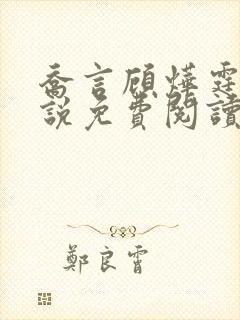 喬言顧燁霆
說免費閱讀
鄭良霄